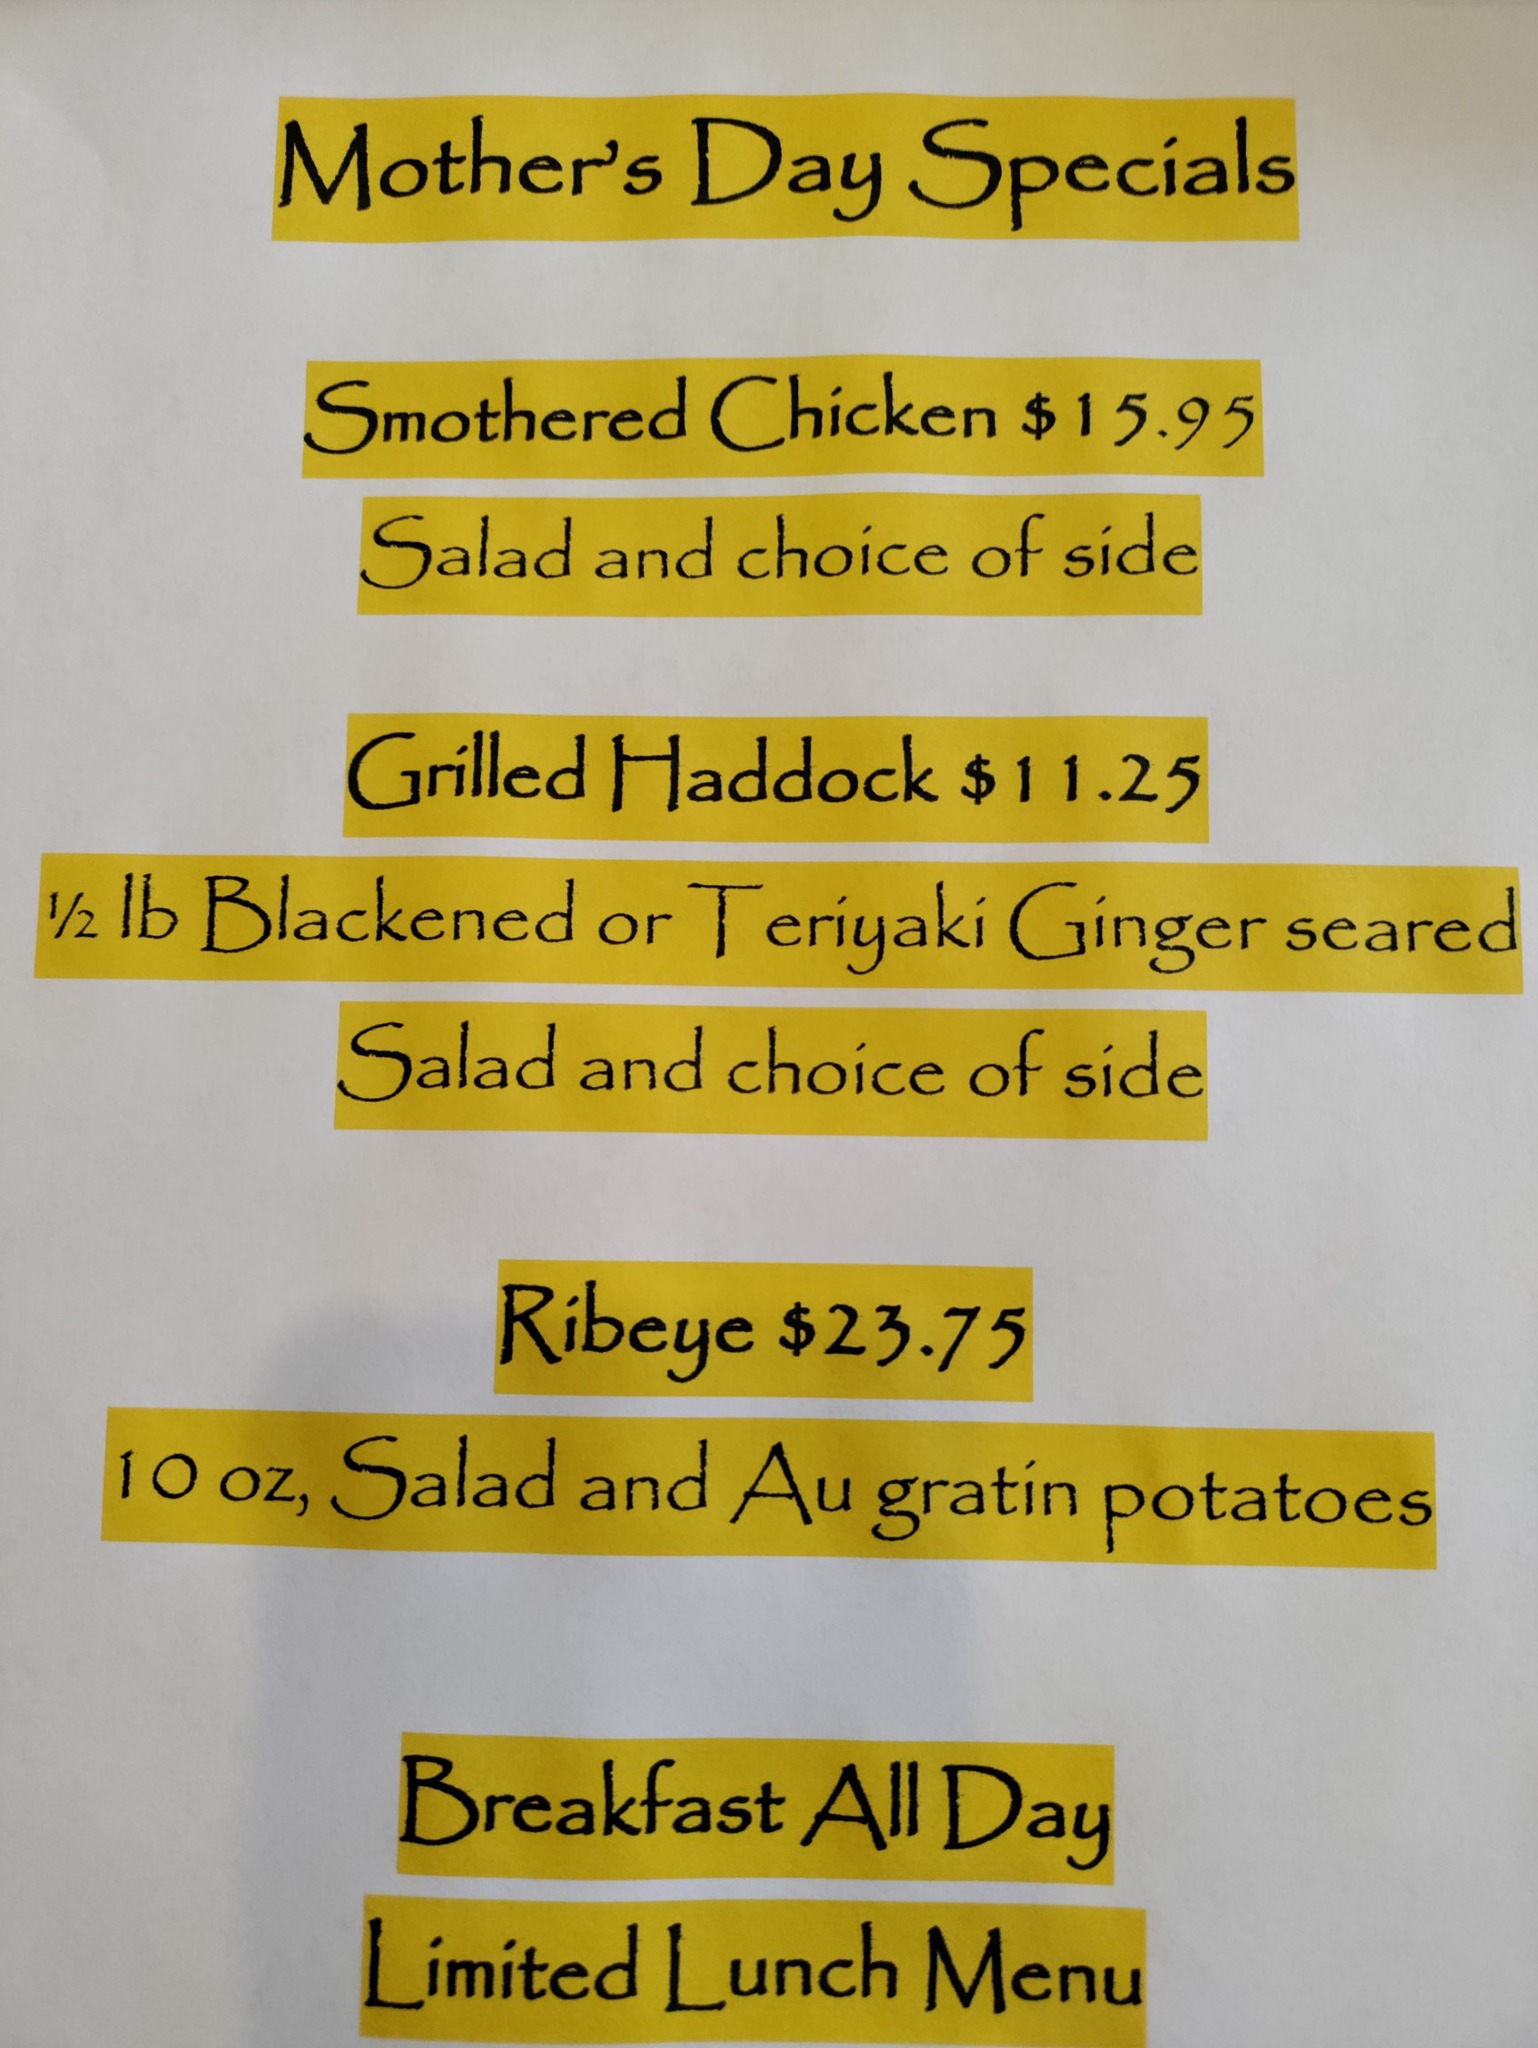 Mother's Day Specials
Smothered Chicken $15.95
Salad and choice of side
Grilled Haddock $11.25
½ lb Blackened or Teriyaki Ginger seared
Salad and choice of side
Ribeye $23.75
10 oz, Salad and Au gratin potatoes
Breakfast All Day
Limited Lunch Menu